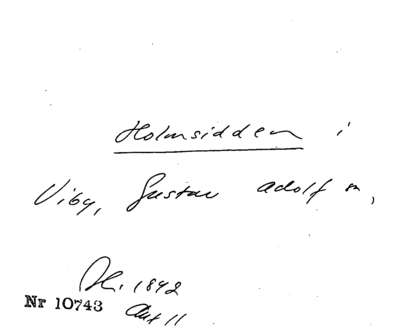 Holmsidden i
Viby, Gustav Adolf m,
1842
Nr 10743